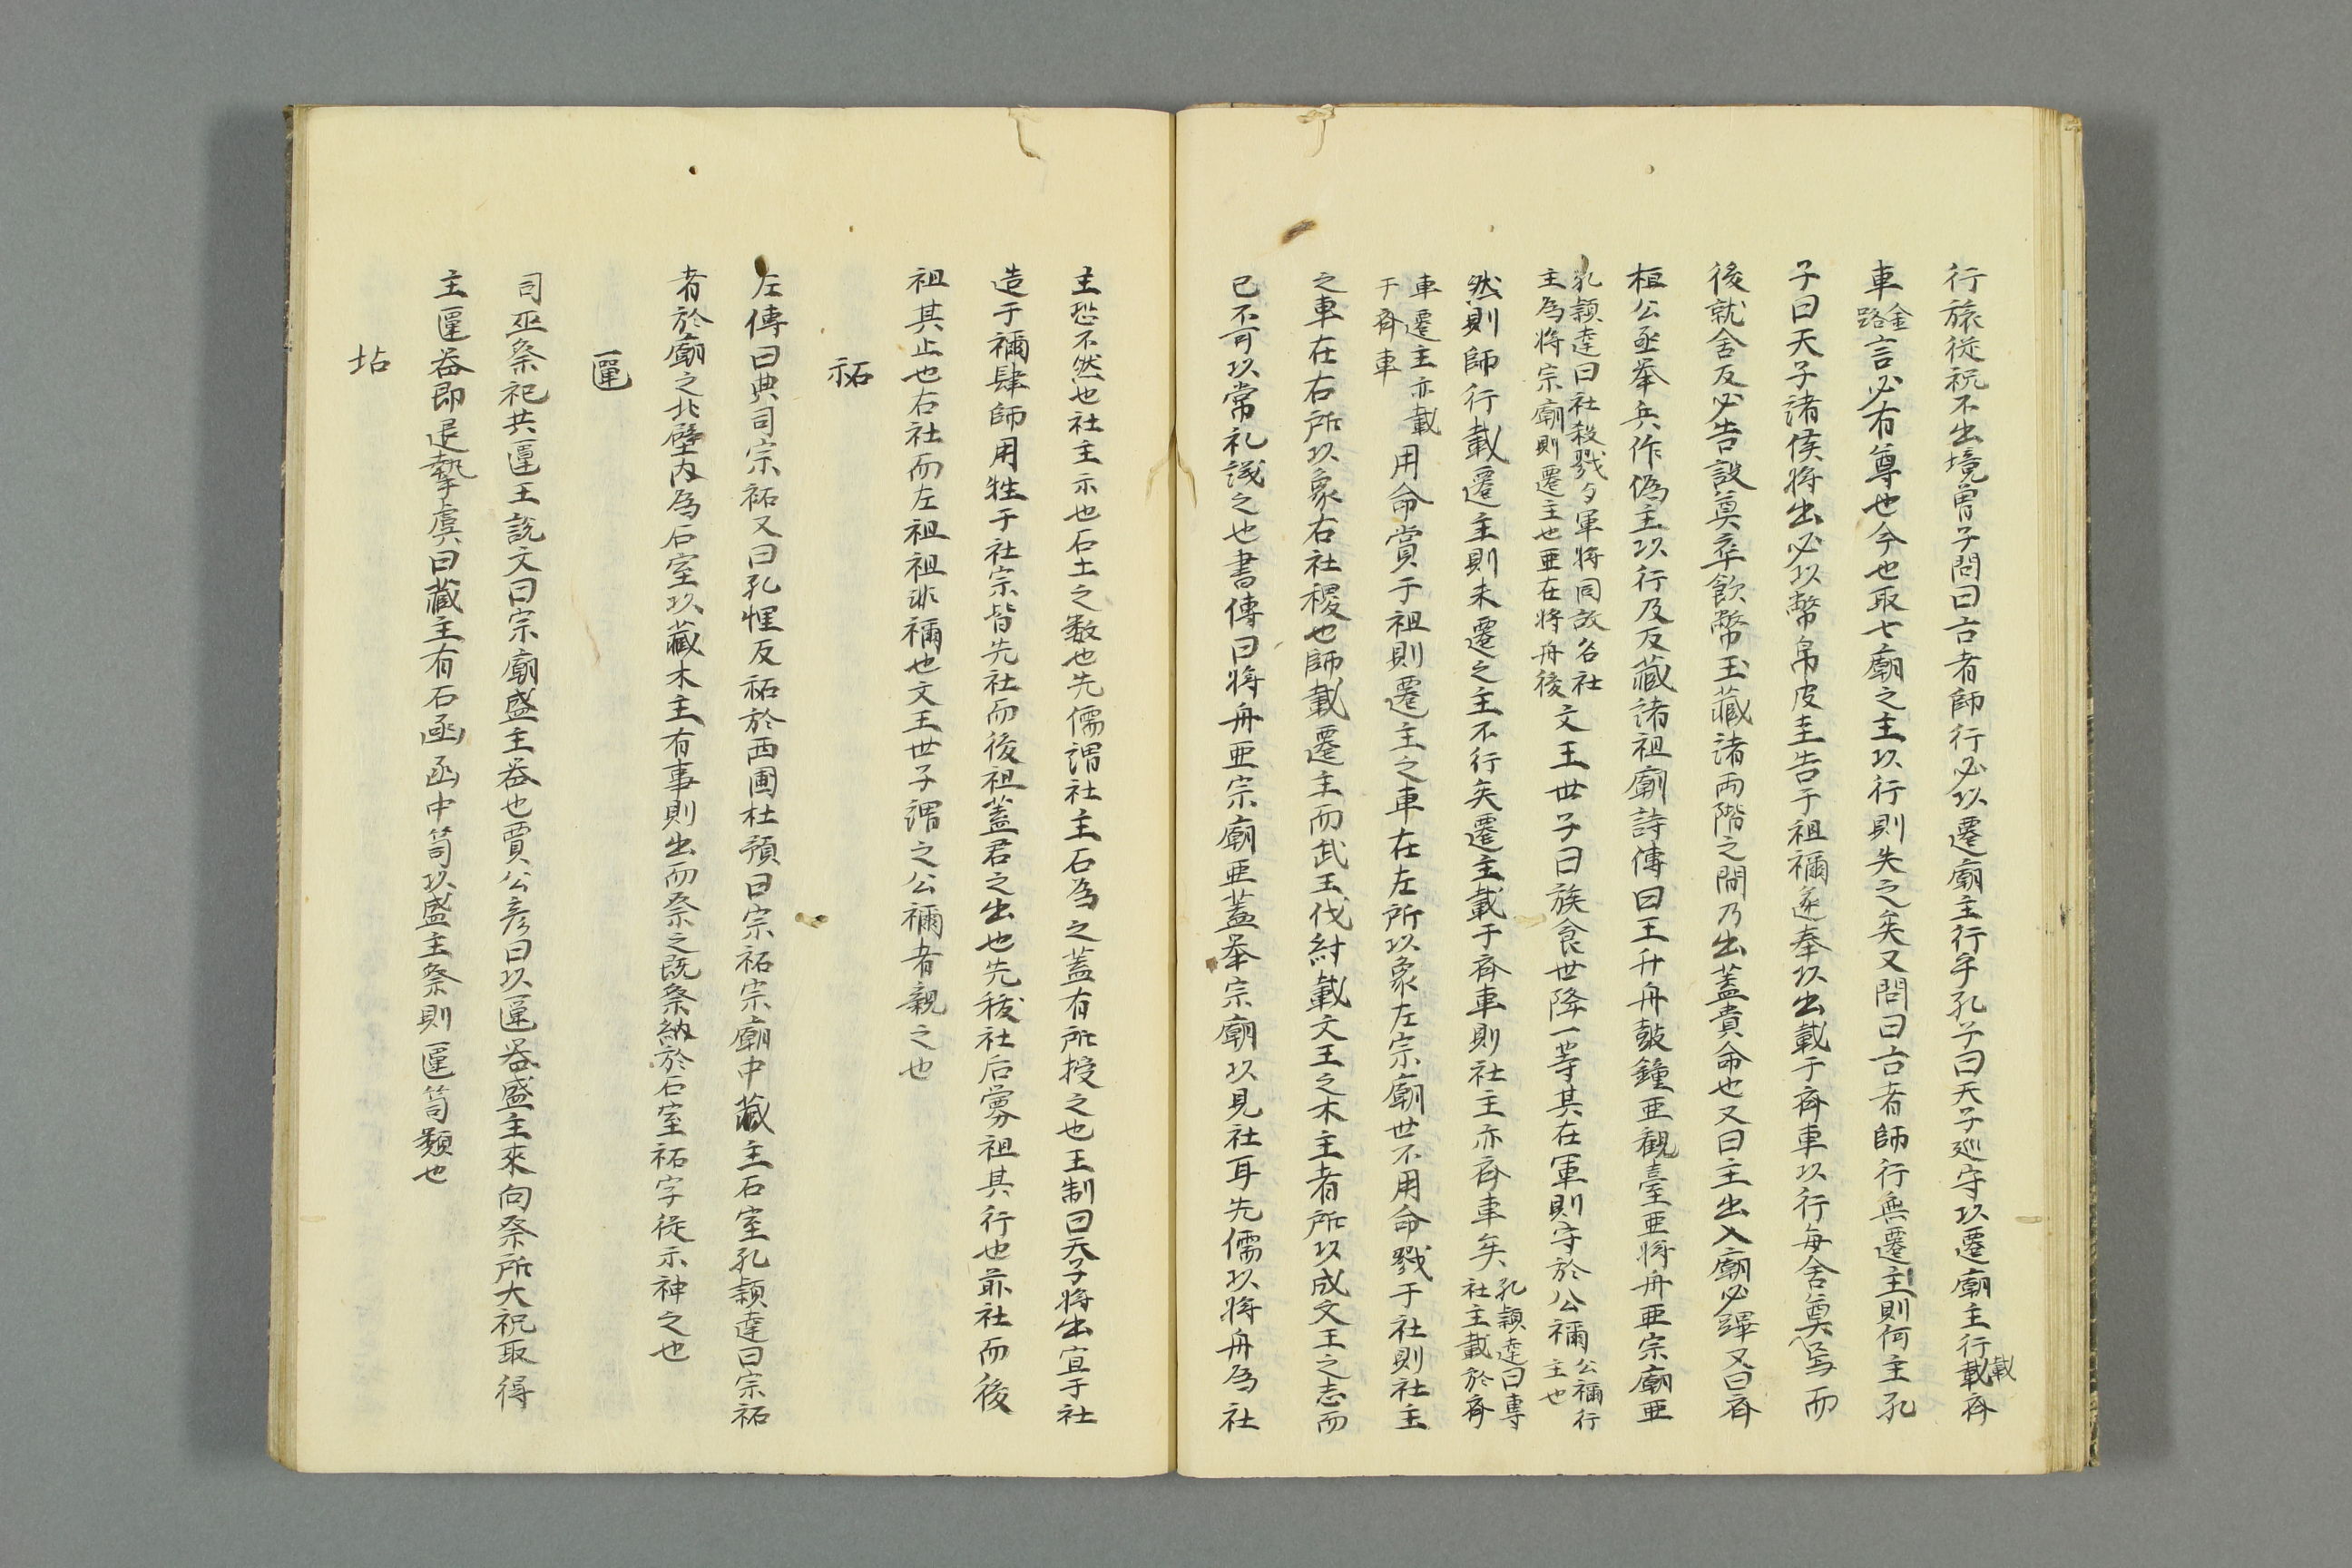 行旅従祝不出境曽子問曰古者師行必以遷廟主行乎孔子曰天子巡守以遷廟主行載齊
載
車金路言必有尊也今也取七廟之主以行則失之矣又問曰古者師行無遷主則何主孔
子曰天子諸侯将出必以幣帛皮圭告于祖禰遂奉以出載于齊車以行毎舎奠焉而
後就舎反必告設奠卒飲幣玉藏諸両階之間乃出蓋貴命也又曰主出入廟必蹕又曰齊
桓公亟挙兵作偽主以行及反藏諸祖廟詩傳曰王升舟鼓鐘亜観臺亜将舟亜宗廟亜
孔穎達曰社殺戮与軍将同故名社
主為将宗廟則遷主也亜在将舟後
文王世子曰族食世降一等其在軍則守於公禰
公禰行
主也
然則師行載遷主則未遷之主不行矣遷主載于齊車則社主亦齊車矣
孔穎達曰専
社主載於齊
車遷主亦載
于齊車
用命賞于祖則遷主之車在左所以象左宗廟世不用命戮于社則社主
之車在右所以象右社稷也師載遷主而武王伐紂載文王之木主者所以成文王之志而
已不可以常礼議之也書傳曰将舟亜宗廟亜蓋挙宗廟以見社耳先儒以将舟為社
主恐不然也社主示也石土之数也先儒謂社主石為之蓋有所授之也王制曰天子将出宜于社
造于禰肆師用牲于社宗皆先社而後祖蓋君之出也先祓社后釁祖其行也前社而後
祖其止也右社而左祖祖非禰也文王世子謂之公禰者親之也
祏
左傳曰典司宗祏又曰孔悝反祏於西圃杜預曰宗祏宗廟中藏主石室孔穎達曰宗祏
者於廟之北壁内為石室以藏木主有事則出而祭之既祭納於石室祏字従示神之也
匰
司巫祭祀共匰主説文曰宗廟盛主器也賈公彦曰以匰器盛主來向祭所大祝取得
主匰器即退摯虞曰藏主有石函函中笥以盛主祭則匰笥類也
坫